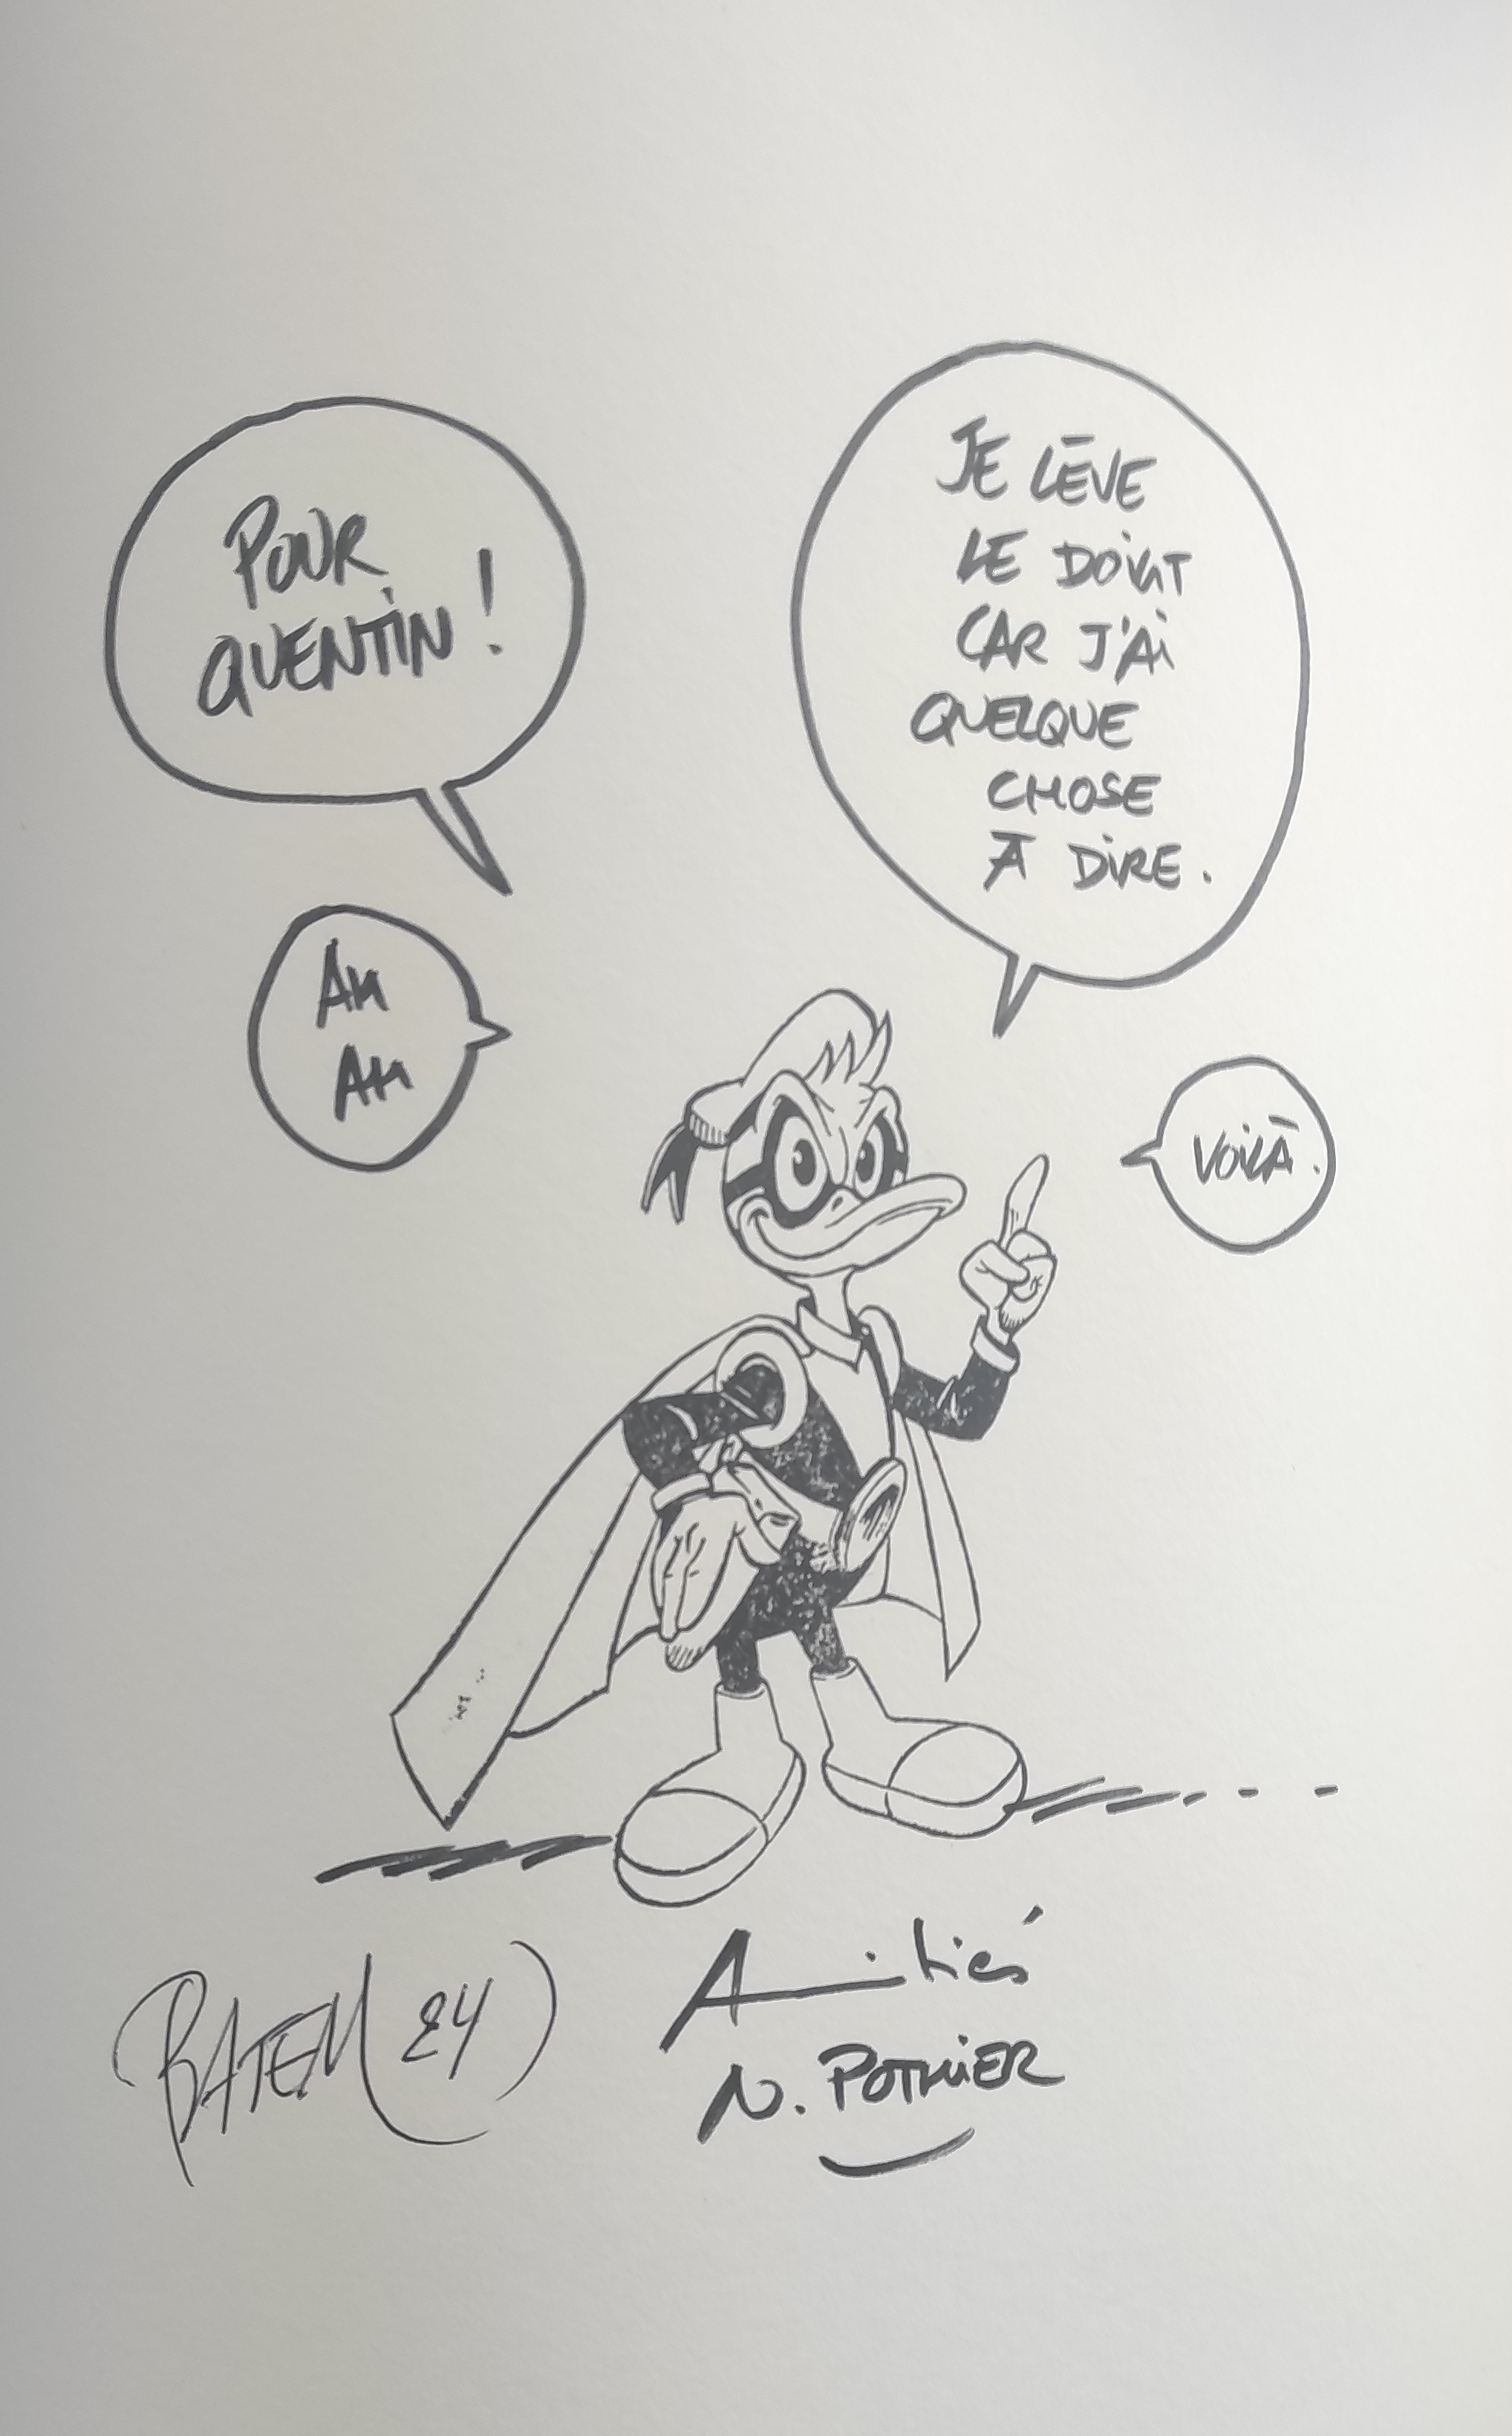 POUR
QUENTIN !
JE LÈVE
LE DOIGT
CAR J'AI
QUELQUE
CHOSE
À DIRE.
AH
AH
VOILÀ.
BATEM 24)
Amitiés
N. POTHIER